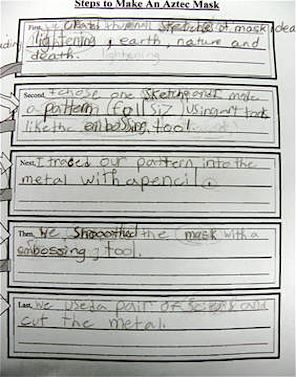 Steps to Make An Aztec Mask
First, we thumbnail sketches of mask idea
lightening, earth, nature and
death. lightening
Second, I chose one sketch and made
a pattern (foll size) using art tools
like the embossing tool.
Next, I traced our pattern into the
metal with a pencil.
Then, We smooothed the mask with a
embossing tool.
Last, We used a pair of and
cut the metal.